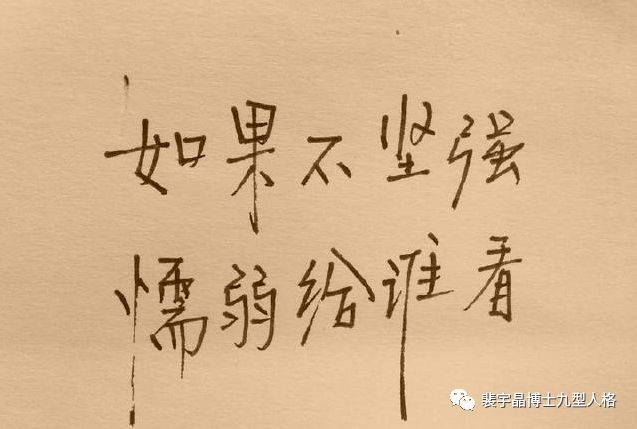 如果不坚强
懦弱给谁看
裴宇晶博士九型人格